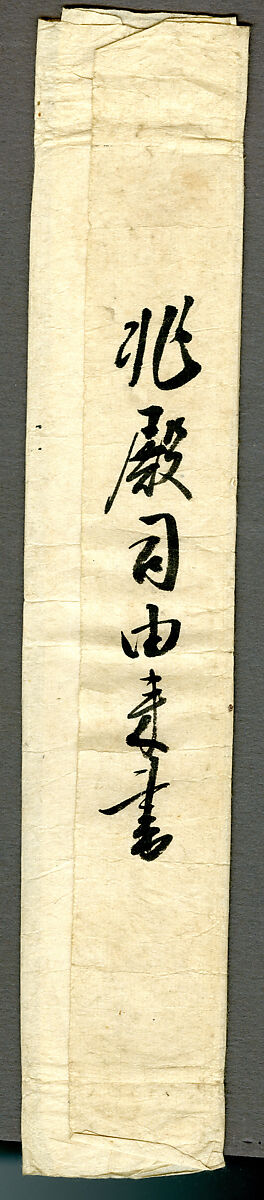 兆殿司由来書